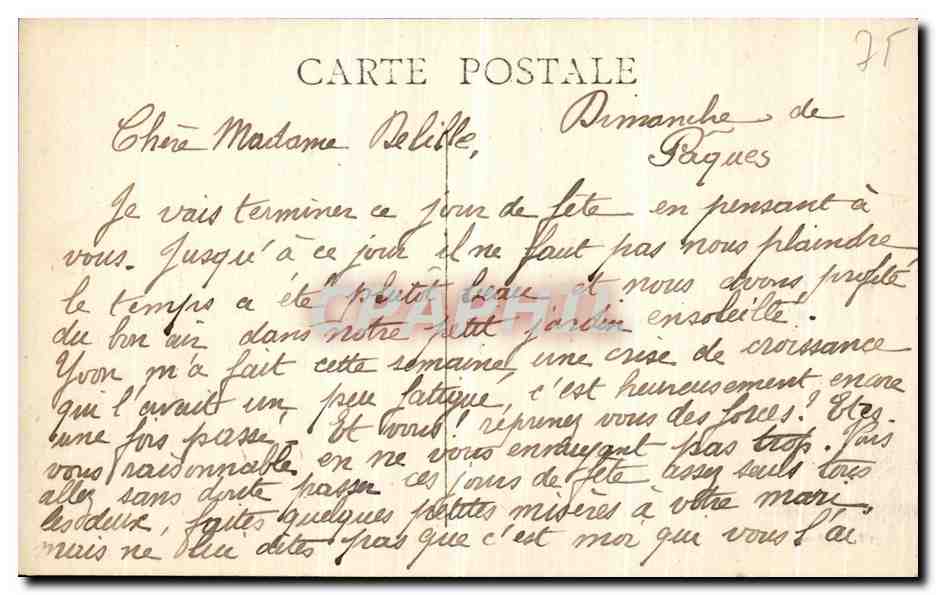 75
CARTE POSTALE
Chère Madame Belille,
Dimanche de
Pâques
Je vais terminer ce jour de fête en pensant à
vous. Jusqu'à ce jour il ne faut pas nous plaindre
le temps a été plutôt beau et nous avons profité
du bon air dans notre petit jardin ensoleillé.
Yvon m'a fait cette semaine, une crise de croissance
qui l'avait un peu fatigué, c'est heureusement encore
une fois passé. Et vous! réprenez vous des forces? Etes-
vous raisonnable en ne vous ennuyant pas trop. Vous
allez sans doute passer ces jours de fête assez seuls tous
les deux, faites quelques petites misères à votre mari
mais ne lui dites pas que c'est moi qui vous l'ai
CPAPHIL